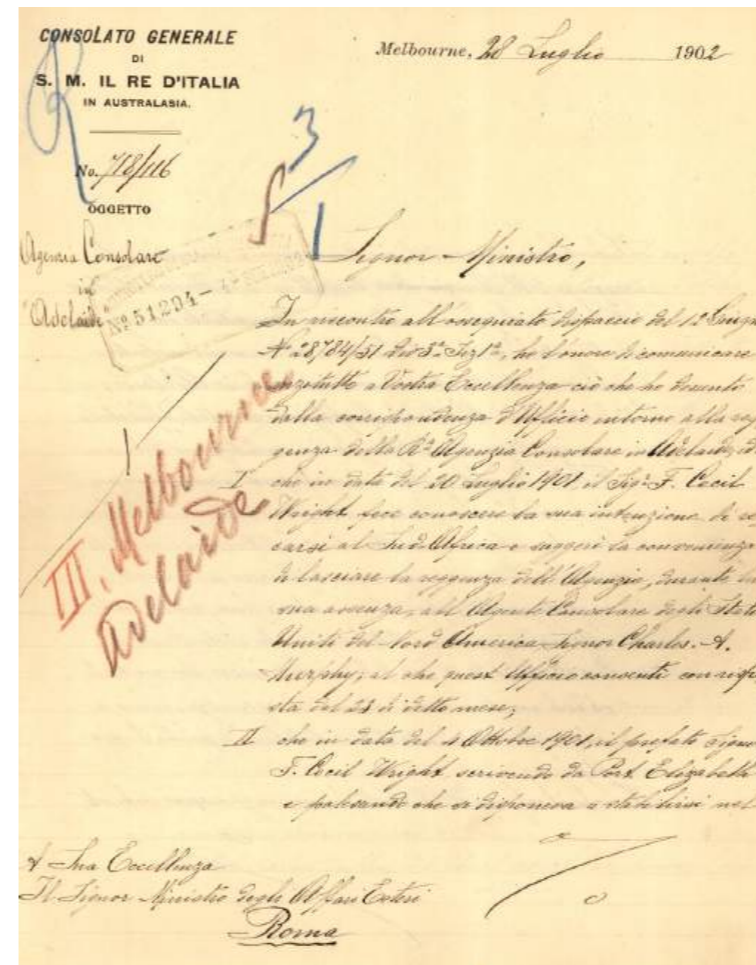 CONSOLATO GENERALE
DI
S. M. IL RE D'ITALIA
IN AUSTRALASIA.
Melbourne, 28 Luglio 1902
No. 718/116
OGGETTO
Agenzia Consolare
in
Adelaide
No 51294
3/1
III, Melbourne
Adelaide
Signor Ministro,
In riscontro all'ossequiato dispaccio del 12 Giugno
ho l'onore di comunicare
anzitutto a Vostra Eccellenza ciò che ho desunto
dalla corrispondenza d'Ufficio intorno alla reg
genza della Ra Agenzia Consolare in Adelaide,
I che in data del 20 Luglio 1901 il Sigr. F. Cecil
Wright fece conoscere la sua intenzione di re
carsi al Sud Africa e suggerì la convenienza
di lasciare la reggenza dell'Agenzia, durante la
sua assenza, all'Agente Consolare degli Stati
Uniti del Nord America Signor Charles. A.
Murphy; al che quest'Ufficio consentì con rispo
sta del 23 di detto mese;
II che in data del 4 Ottobre 1901, il prefato Signor
F. Cecil Wright scrivendo da Port Elizabeth
e palesando che si disponeva a stabilirsi nel
A Sua Eccellenza
Il Signor Ministro degli Affari Esteri
Roma